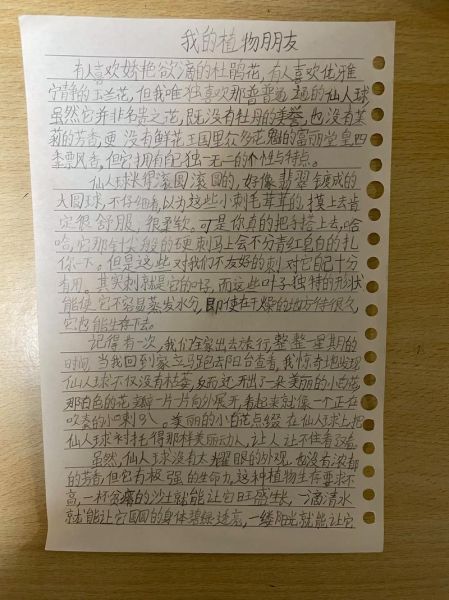 我的植物朋友
有人喜欢娇艳欲滴的杜鹃花，有人喜欢优雅
宁静的玉兰花，但我唯独喜欢那普普通通的仙人球
虽然它并非名贵之花，既没有牡丹的美誉，也没有茉
莉的芳香，更没有鲜花王国里众多花魁的富丽堂皇，四
季飘香，但它拥有自己独一无二的个性与特点。
仙人球长得滚圆滚圆的，好像翡翠变成的
大圆球，不仔细看，以为这些小刺毛茸茸的，摸上去肯
定很舒服，很柔软。可是你真的把手搭上去，哈
哈，它那针尖般的硬刺马上会不分青红皂白的扎
你一下。但是这些对我们不友好的刺对它自己十分
有用。其实刺就是它的叶子，而这些叶子独特的形状
能使它不容易蒸发水分，即使在干燥的地方待很久，
它也能生存下去。
记得有一次，我们在家出去旅行整整一星期的
时间，当我回到家立马跑去阳台查看，我惊奇地发现
仙人球不仅没有枯萎，反而还开出了一朵美丽的小白花，
那白色的花瓣一片片向外展开，看起来就像一个正在
吹奏的小喇叭。美丽的小白花点缀在仙人球上，把
仙人球衬托得那样美丽动人，让人让不住看
虽然，仙人球没有太耀眼的外观，也没有浓郁
的芳香，但它有极强的生命力，这种植物生存要求不
高，一杯的沙土就能让它旺盛生长，一滴清水
就能让它圆圆的身体碧绿透亮，一缕阳光就能让它